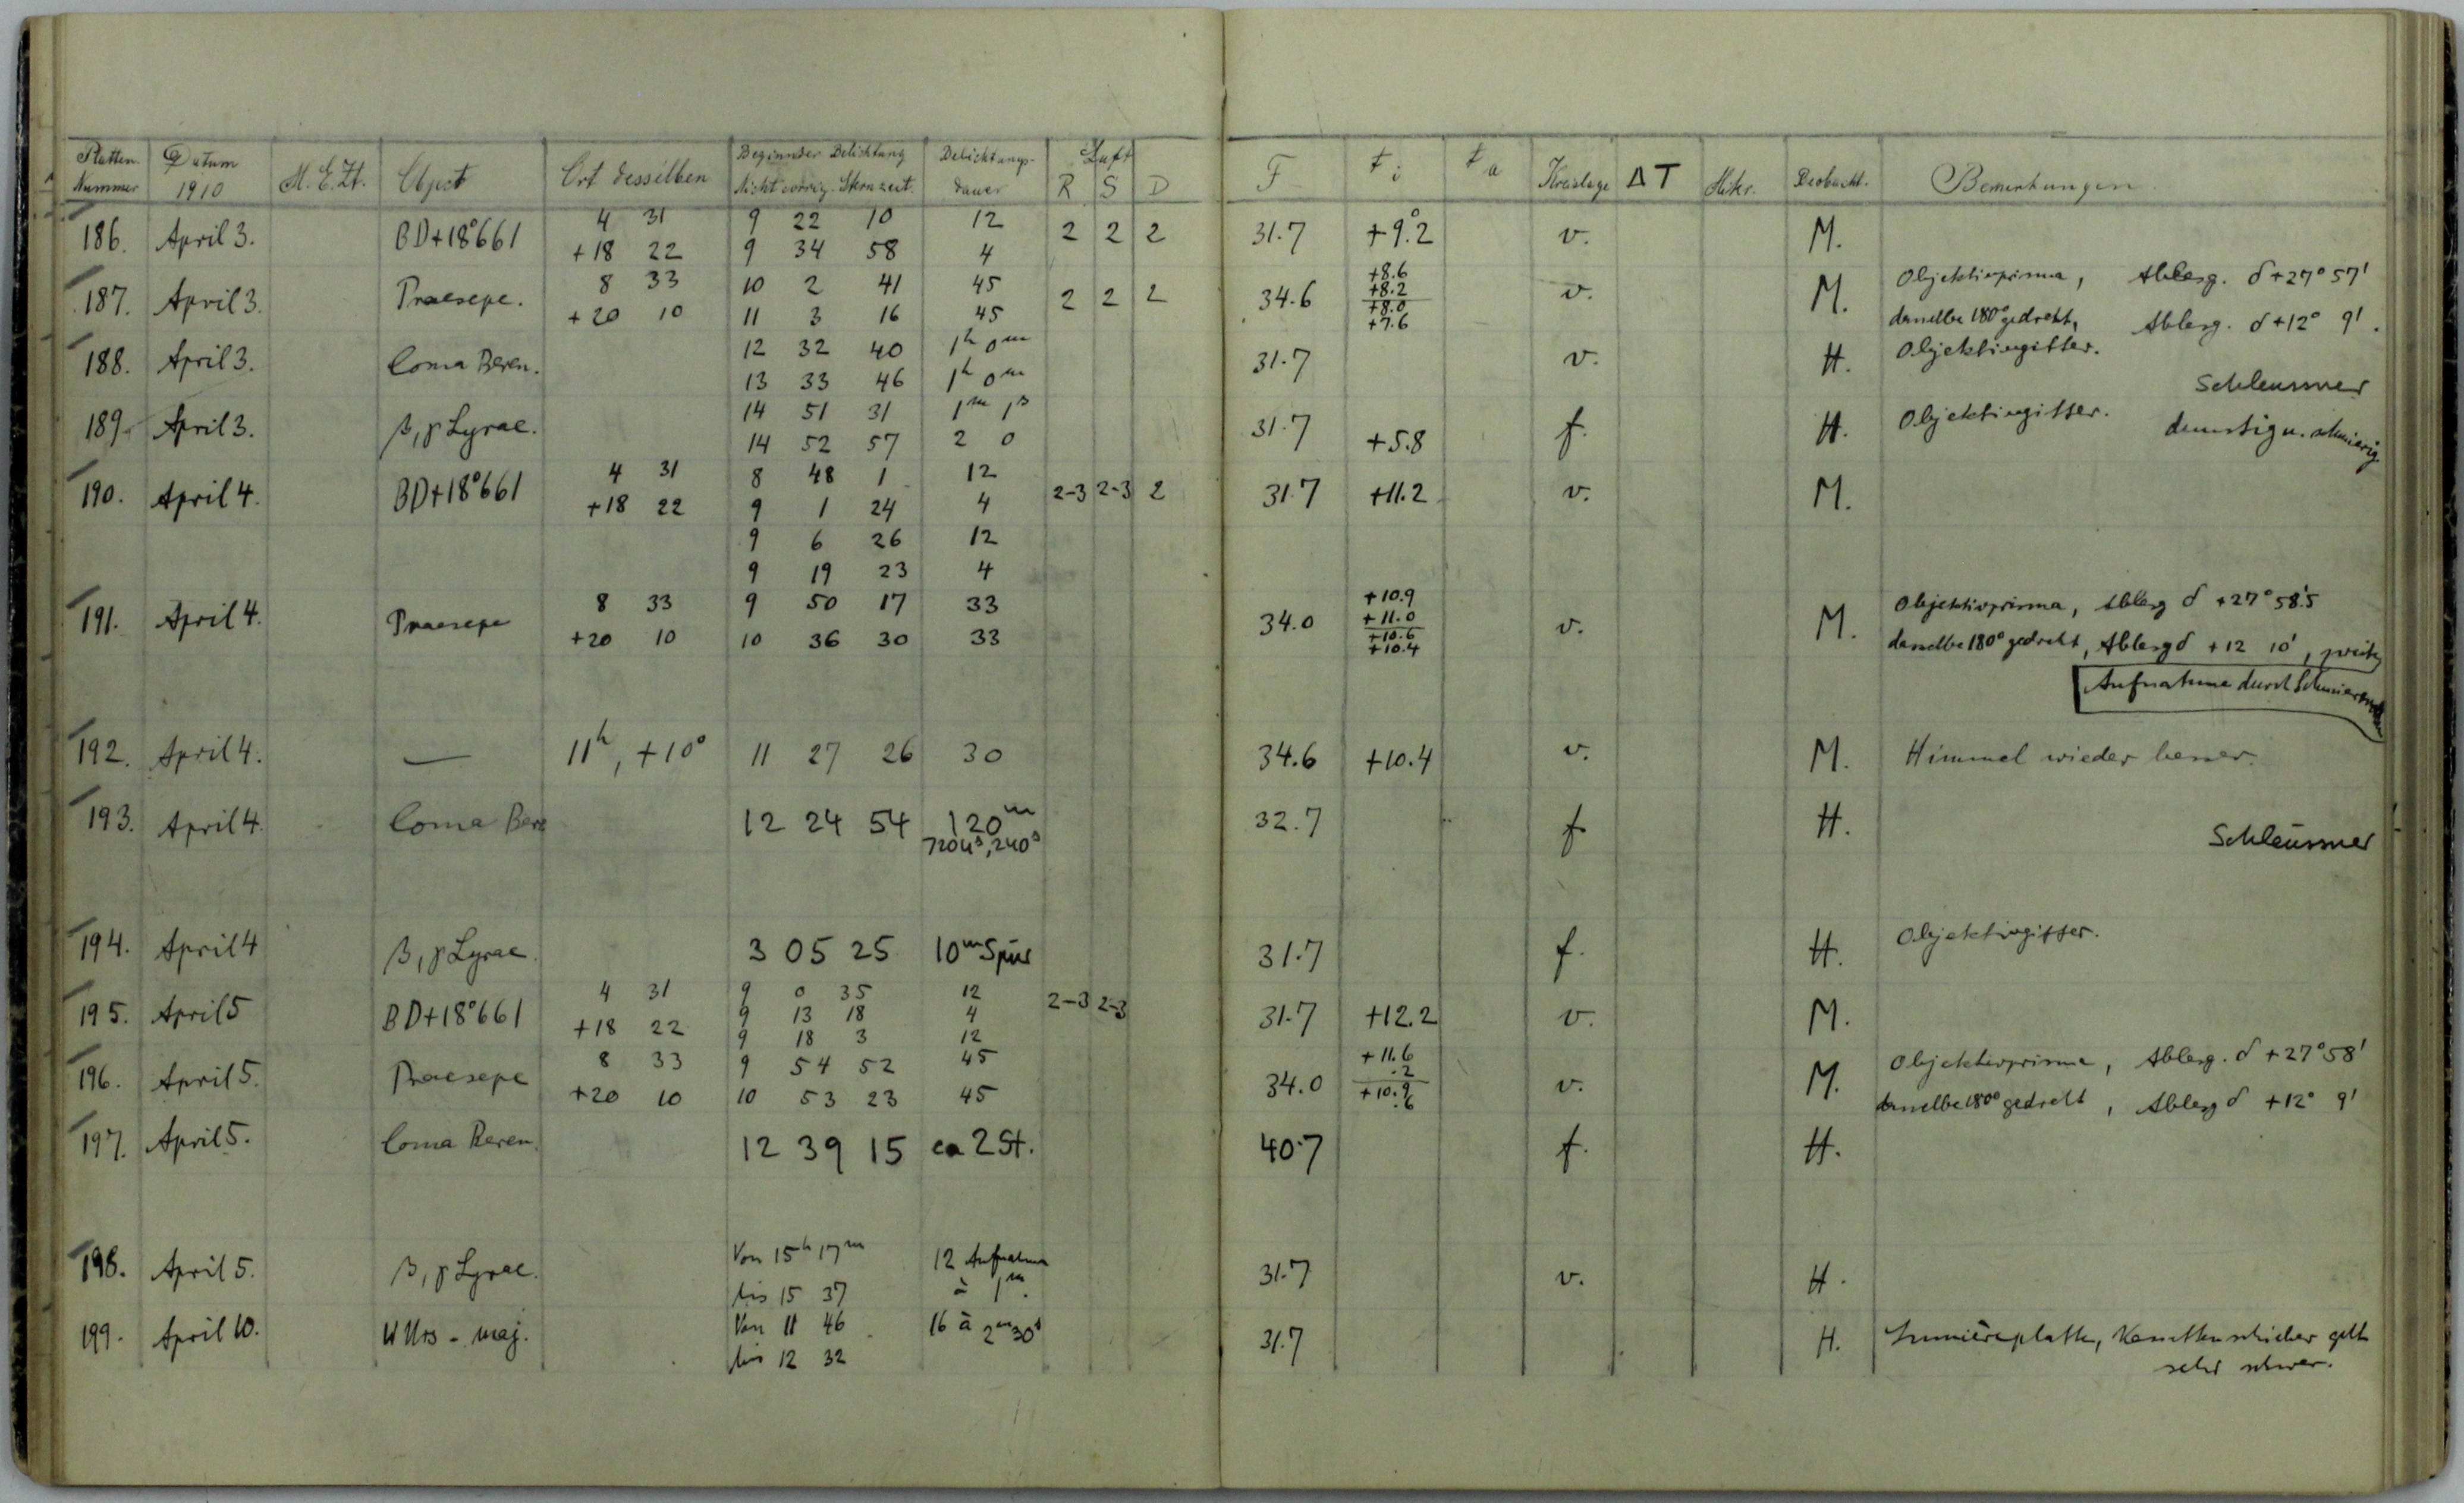 Platten Nummer Datum 1910 M. E. Zt. Object Ort desselben Beginn der Belichtung Nicht corrig. Sternzeit. Belichtungsdauer Luft R S D F t i t a Kreislage ΔT Mikr. Beobacht. Bemerkungen
186. April 3. BD+18°661 4 31 9 22 10 12 2 2 2 31.7 +9°.2 v. M.
+18 22 9 34 58 4
187. April 3. Praesepe. 8 33 10 2 41 45 2 2 2 34.6 +8.6 +8.2 v. M. Objektivprisma, Ablesg. δ +27° 57'
+20 10 11 3 16 45 +8.0 +7.6 dasselbe 180° gedreht, Ablesg. δ +12° 9'.
188. April 3. Coma Beren. 12 32 40 1h 0m 31.7 v. H. Objektivgitter.
13 33 46 1h 0m Schleussner
189. April 3. β, γ Lyrae. 14 51 31 1m 1s 31.7 +5.8 f. H. Objektivgitter. dunstig u. schmierig
14 52 57 2 0
190. April 4. BD+18°661 4 31 8 48 1 12 2-3 2-3 2 31.7 +11.2 v. M.
+18 22 9 1 24 4
9 6 26 12
9 19 23 4
191. April 4. Praesepe 8 33 9 50 17 33 34.0 +10.9 +11.0 v. M. Objektivprisma, Ablesg δ +27° 58'.5
+20 10 10 36 30 33 +10.6 +10.4 dasselbe 180° gedreht, Ablesg δ +12 10', zweite
Aufnahme durch
192. April 4. — 11h, +10° 11 27 26 30 34.6 +10.4 v. M. Himmel wieder besser.
193. April 4. Coma Bere 12 24 54 120m 32.7 f H.
7204s, 240s Schleussner
194. April 4 β, γ Lyrae. 3 05 25 10m Spur 31.7 f. H. Objektivgitter.
195. April 5 BD+18°661 4 31 9 0 35 12 2-3 2-3 31.7 +12.2 v. M.
+18 22 9 13 18 4
9 18 3 12
196. April 5. Praesepe 8 33 9 54 52 45 34.0 +11.6 .2 v. M. Objektivprisma, Ablesg. δ +27° 58'
+20 10 10 53 23 45 +10.9 .6 dasselbe 180° gedreht, Ablesg δ +12° 9'
197. April 5. Coma Beren. 12 39 15 ca 2 St. 40.7 f. H.
198. April 5. β, γ Lyrae. Von 15h 17m 12 Aufnahmen 31.7 v. H.
bis 15 37 à 1m.
199. April 10. W Urs. maj. Von 11 46 16 à 2m 30s 31.7 H. Lumièreplatte, Kassettenschieber geht
bis 12 32 sehr schwer.